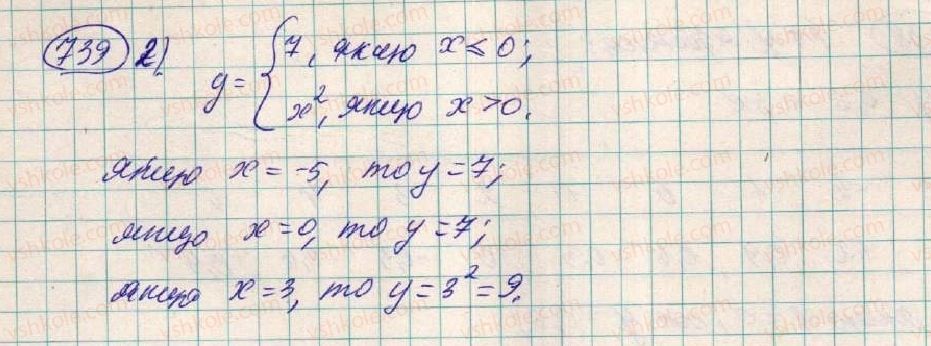 739 2)
y = { 7, якщо x ≤ 0;
x², якщо x > 0.
якщо x = -5, то y = 7;
якщо x = 0, то y = 7;
якщо x = 3, то y = 3² = 9.
vshkole.com